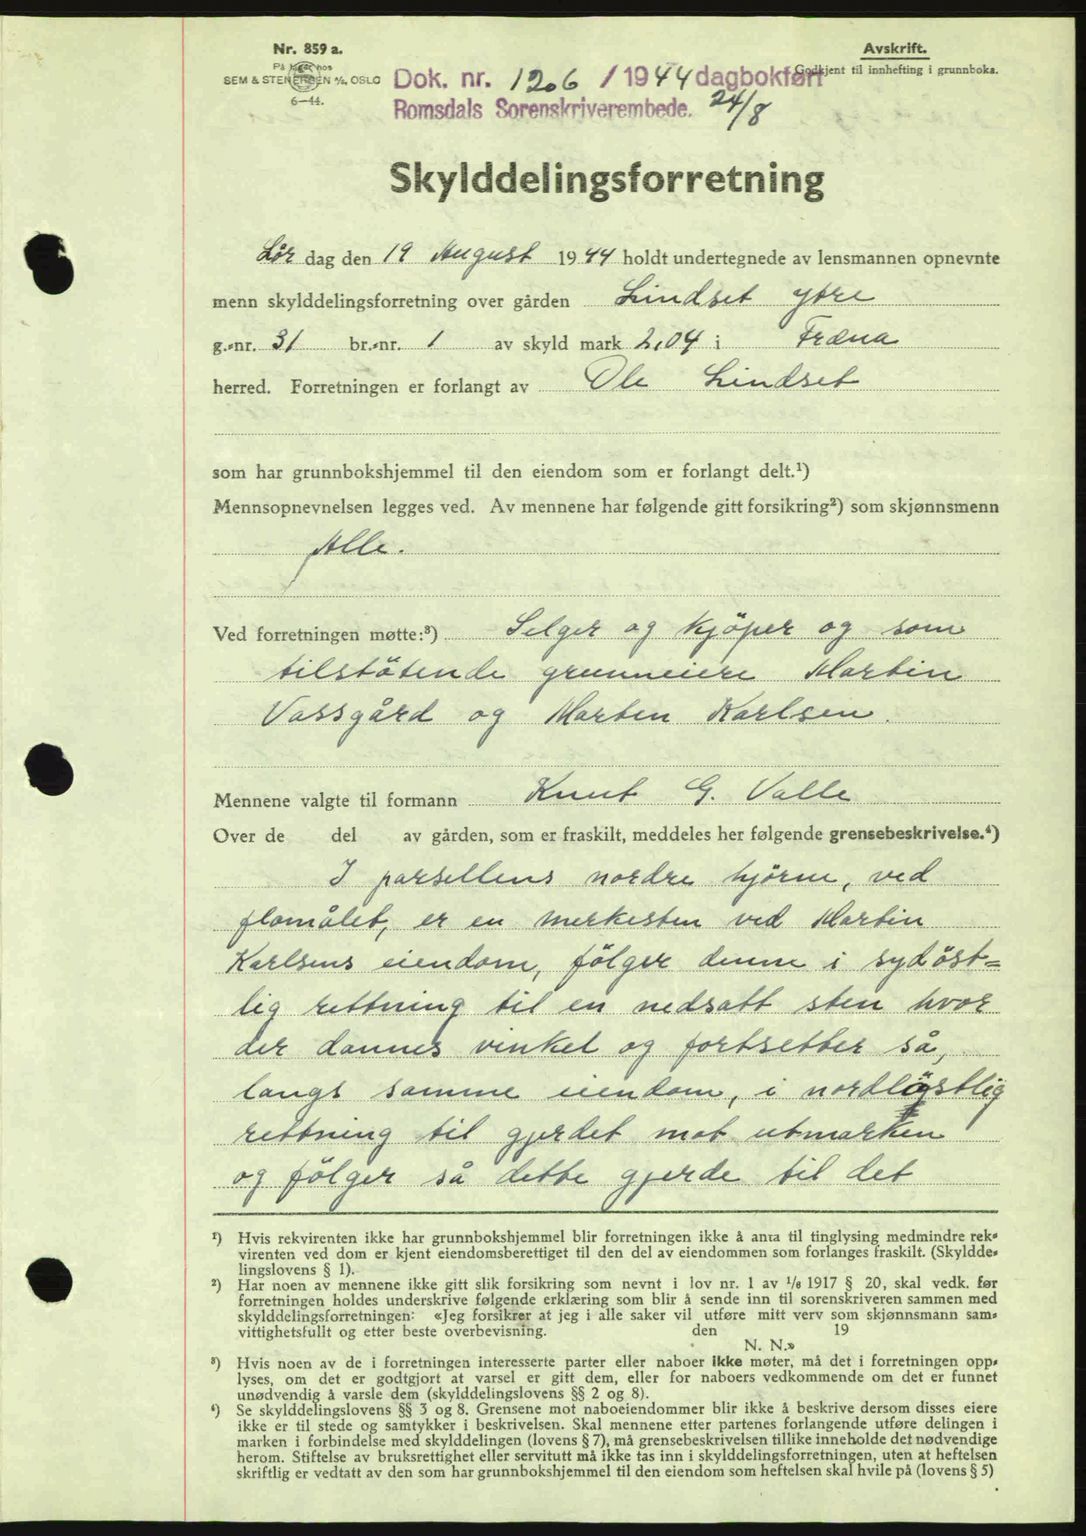 Nr. 859 a.
På lager hos
SEM & STENERSEN A/S, OSLO
6-44.
Avskrift.
Godkjent til innhefting i grunnboka.
Dok. nr. 1206 / 1944 dagbokført
Romsdals Sorenskriverembede. 24/8
Skylddelingsforretning
Lör dag den 19 August 1944 holdt undertegnede av lensmannen opnevnte
menn skylddelingsforretning over gården Lindset ytre
g.-nr. 31 br.-nr. 1 av skyld mark 2,04 i Fræna
herred. Forretningen er forlangt av Ole Lindset
som har grunnbokshjemmel til den eiendom som er forlangt delt.¹)
Mennsopnevnelsen legges ved. Av mennene har følgende gitt forsikring²) som skjønnsmenn
Alle.
Ved forretningen møtte:³) Selger og kjöper og som
tilstötende grunneiere Martin
Vassgård og Marten Karlsen.
Mennene valgte til formann Knut G. Valle
Over de del av gården, som er fraskilt, meddeles her følgende grensebeskrivelse.⁴)
I parsellens nordre hjörne, ved
flomålet, er en merkesten ved Martin
Karlsens eiendom, fölger denne i sydöst=
lig rettning til en nedsatt sten hvor
der dannes vinkel og fortsetter så,
langs samme eiendom, i nordlöstlig
rettning til gjerdet mot utmarken
og fölger så dette gjerde til det
¹) Hvis rekvirenten ikke har grunnbokshjemmel blir forretningen ikke å anta til tinglysing medmindre rek-
virenten ved dom er kjent eiendomsberettiget til den del av eiendommen som forlanges fraskilt. (Skyldde-
lingslovens § 1).
²) Har noen av mennene ikke gitt slik forsikring som nevnt i lov nr. 1 av 1/6 1917 § 20, skal vedk. før
forretningen holdes underskrive følgende erklæring som blir å sende inn til sorenskriveren sammen med
skylddelingsforretningen: «Jeg forsikrer at jeg i alle saker vil utføre mitt verv som skjønnsmann sam-
vittighetsfullt og etter beste overbevisning. den 19
N. N.»
³) Hvis noen av de i forretningen interesserte parter eller naboer ikke møter, må det i forretningen opp-
lyses, om det er godtgjort at varsel er gitt dem, eller for naboers vedkommende om det er funnet
unødvendig å varsle dem (skylddelingslovens §§ 2 og 8).
⁴) Se skylddelingslovens §§ 3 og 8. Grensene mot naboeiendommer blir ikke å beskrive dersom disses eiere
ikke er til stede og samtykker i beskrivelsen. Skal mennene etter partenes forlangende utføre delingen i
marken i forbindelse med skylddelingen (lovens § 7), må grensebeskrivelsen tillike inneholde det nødvendige
herom. Stiftelse av bruksrettighet eller servitutt må ikke tas inn i skylddelingsforretningen, uten at heftelsen
skriftlig er vedtatt av den som har grunnbokshjemmel til den eiendom som heftelsen skal hvile på (lovens § 5)